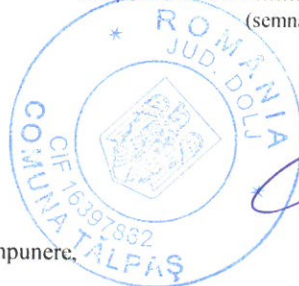 (semna
ROMÂNIA
JUD. DOLJ
COMUNA TALPAȘ
CIF 16397832
mpunere,